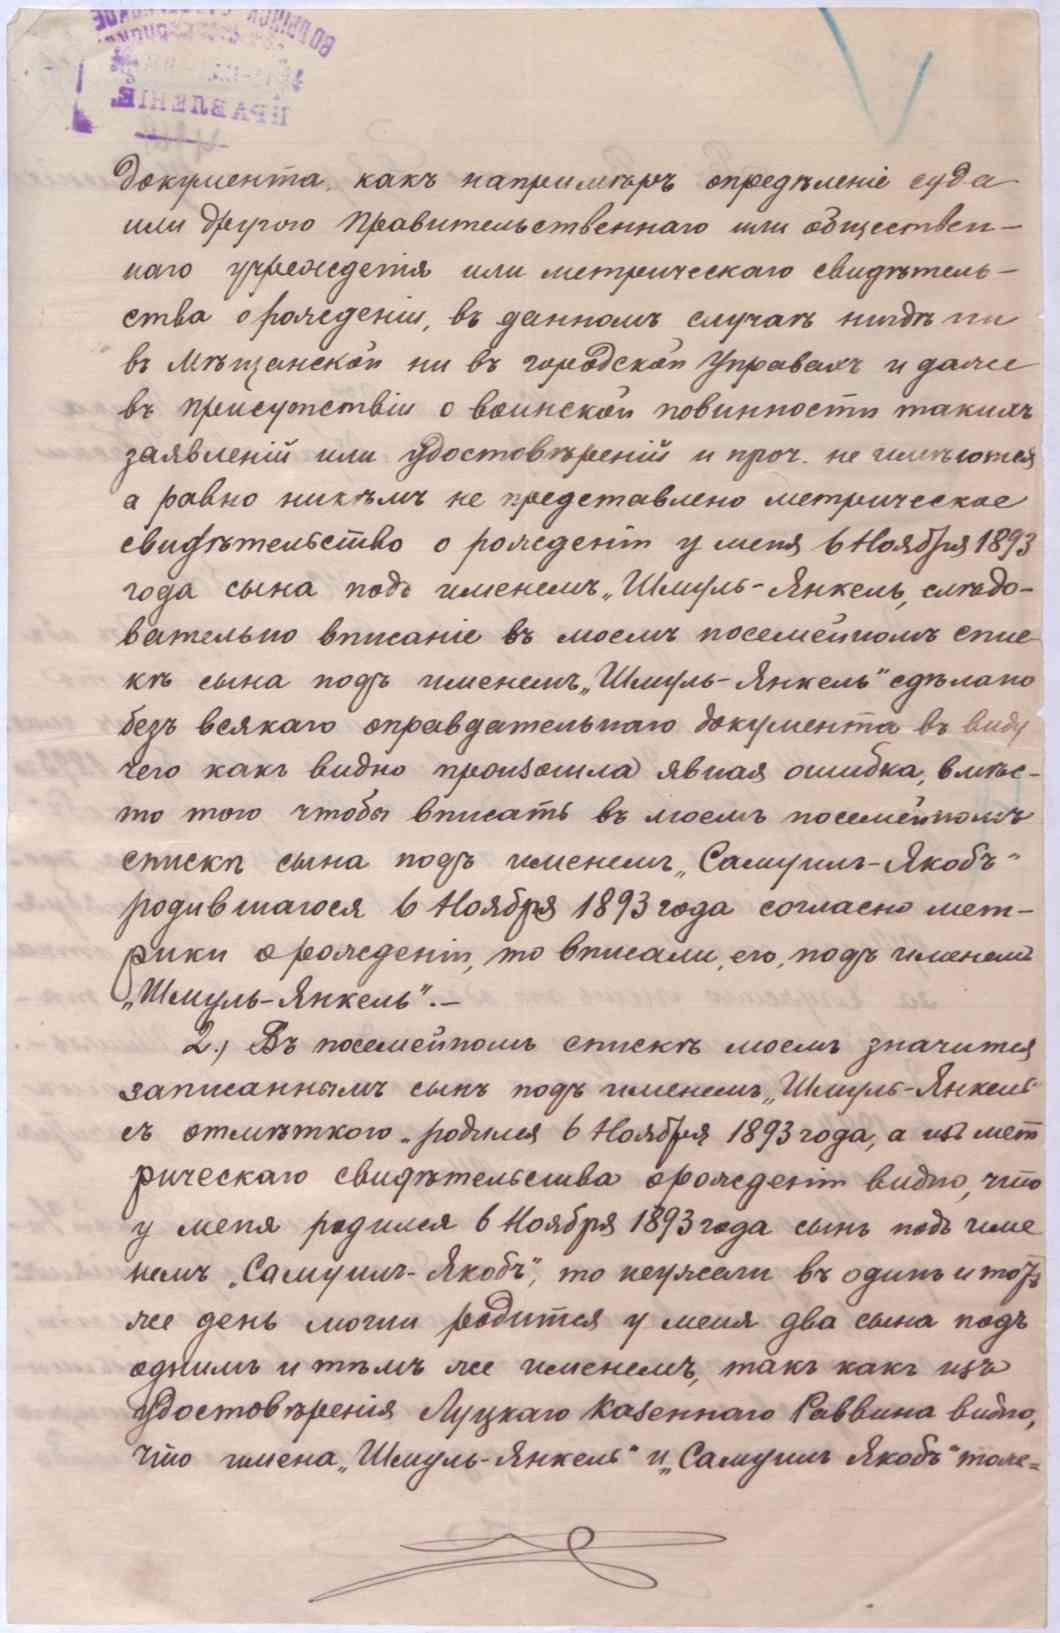 ПРАВЛЕНІЕ
документа, какъ напримѣръ опредѣленіе суда
или другого Правительственнаго или обществен-
наго учрежденія или метрическаго свидѣтель-
ства о рожденіи, въ данномъ случаѣ нигдѣ ни
въ Мѣщанской ни въ городской Управахъ и даже
въ присутствіи о воинской повинности такихъ
заявленій или удостовѣреній и проч. не имѣются
а равно никѣмъ не представлено метрическое
свидѣтельство о рожденіи у меня 6 Ноября 1893
года сына подъ именемъ „Шмуль-Янкель, слѣдо-
вательно вписаніе въ моемъ посемейномъ спис-
кѣ сына подъ именемъ „Шмуль-Янкель" сдѣлано
безъ всякаго оправдательнаго документа въ виду
чего какъ видно произошла явная ошибка, вмѣс-
то того чтобы вписать въ моемъ посемейномъ
спискѣ сына подъ именемъ „Самуилъ-Якобъ"
родившагося 6 Ноября 1893 года согласно мет-
рики о рожденіи, то вписали, его, подъ именемъ
„Шмуль-Янкель".—
2.) Въ посемейномъ спискѣ моемъ значится
записаннымъ сынъ подъ именемъ „Шмуль-Янкель"
съ отмѣткою „родился 6 Ноября 1893 года, а изъ мет
рическаго свидѣтельства о рожденіи видно, что
у меня родился 6 Ноября 1893 года сынъ подъ име
немъ „Самуилъ-Якобъ", то неужели въ одинъ и тотъ
же день могли родится у меня два сына подъ
однимъ и тѣмъ же именемъ, такъ какъ изъ
удостовѣренія Луцкаго Казеннаго Раввина видно,
что имена „Шмуль-Янкель" и „Самуилъ Якобъ" тоже=